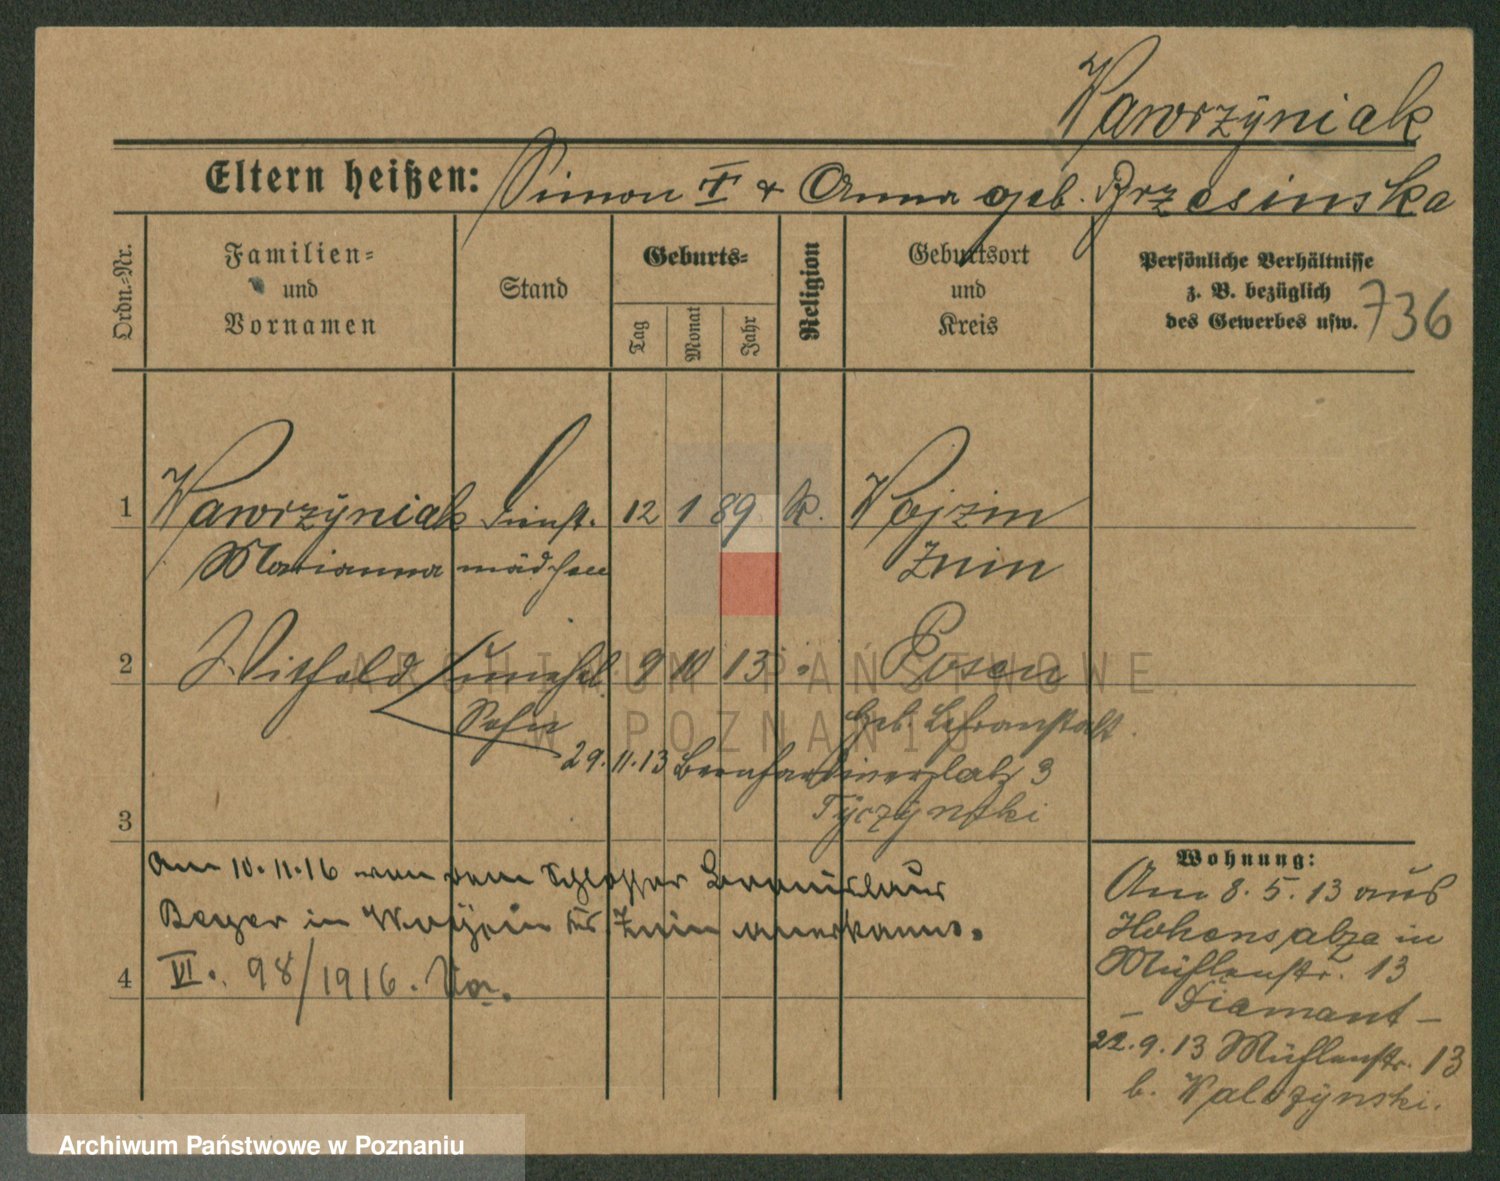 Wawrzÿniak
Eltern heißen: Simon † & Anna geb. Brzesinska
Ordn.-Nr.
Familien- und Vornamen
Stand
Geburts-
Tag
Monat
Jahr
Religion
Geburtsort und Kreis
Persönliche Verhältnisse
z. B. bezüglich
des Gewerbes usw.
736
1 Wawrzÿniak Dienst- 12 1 89 k. Wojzin
Marianna mädchen Znin
2 Withold unehel. 9 10 13 " Posen
Sohn Geb. Lehranstalt.
29.11.13 Bernhardinerplatz 3
Tÿczÿnski
3
Am 10.11.16 von dem Schlosser
in Kr. Znin anerkannt.
VI. 98/1916.
4
Wohnung:
Am 8.5.13 aus
Hohensalza in
Mühlenstr. 13
Diamant -
22.9.13 Mühlenstr. 13
b. Walczÿnski.
ARCHIWUM PAŃSTWOWE
W POZNANIU
Archiwum Państwowe w Poznaniu